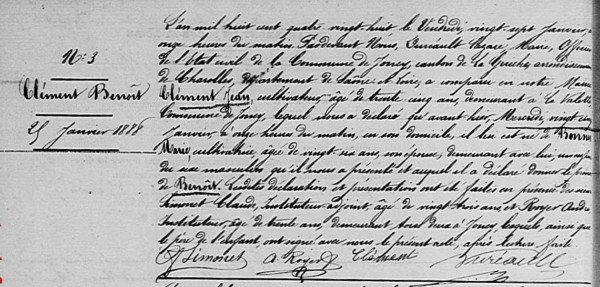 N: 3
Clément Benoît
25 Janvier 1888
L'an mil huit cent quatre vingt huit le Vendredi vingt sept Janvier, à
onze heures du matin. Pardevant Nous, Perréault Lazare, Maire, Officier
de l'Etat civil de la Commune de Joncy, canton de la Guiche, arrondissement
de Charolles, département de Saône et Loire, a comparu en notre Mairie
Clément Jean, cultivateur, âgé de trente cinq ans, demeurant à La Valette
Commune de Joncy, lequel nous a déclaré qu'avant hier, Mercredi, vingt cinq
Janvier à onze heures du matin, en son domicile, il lui est né de
Marie, cultivatrice âgée de vingt six ans, son épouse, demeurant avec lui, un enfant
du sexe masculin qu'il nous a présenté et auquel il a déclaré donner le prénom
de Benoît. Lesdites déclaration et présentation ont été faites en présence de
Simonet Claude, Instituteur adjoint, âgé de vingt trois ans et Royer André
Instituteur, âgé de trente ans, demeurant tous deux à Joncy, lesquels, ainsi que
le père de l'enfant ont signé avec nous le présent acte, après lecture faite
Simonet A Royer Clément